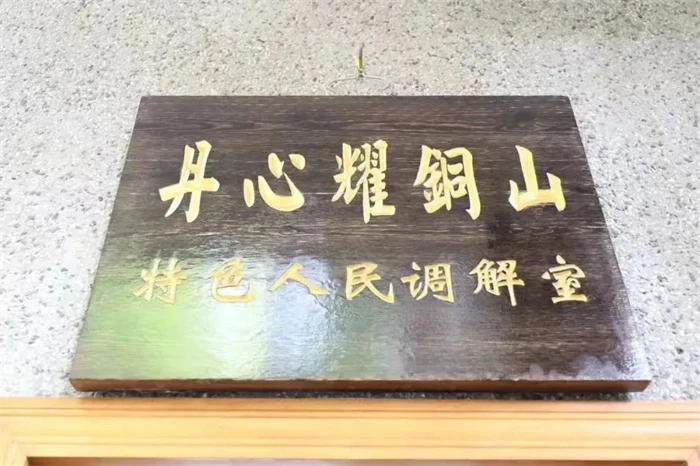 丹心耀銅山
特色人民调解室